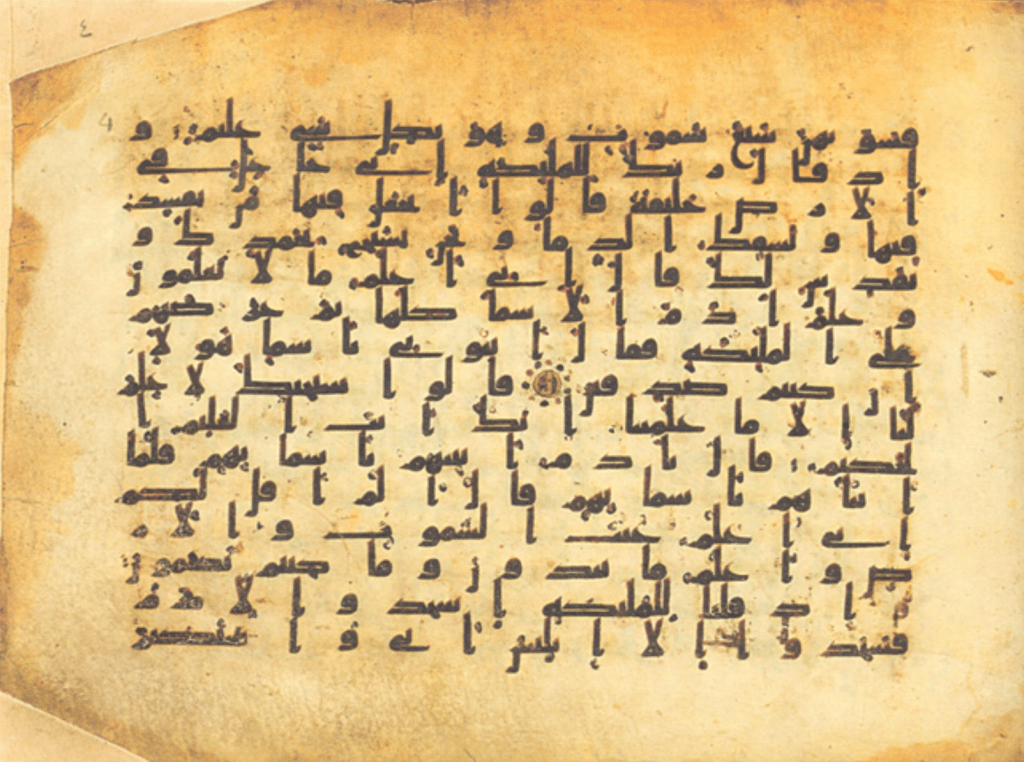 ٤
4
فسويهن سبع سموت و هو بكل شي عليم و
اذ قال ربك للمليكة اني جاعل في
الارض خليفة قالوا اتجعل فيها من يفسد
فيها و يسفك الدما و نحن نسبح بحمدك و
نقدس لك قال اني اعلم ما لا تعلمون
و علم ادم الاسما كلها ثم عرضهم
على المليكة فقال انبوني باسما هولا
ان كنتم صدقين قالوا سبحنك لا علم
لنا الا ما علمتنا انك انت العليم
الحكيم قال يادم انبيهم باسمايهم فلما
انباهم باسمايهم قال الم اقل لكم
اني اعلم غيب السموت و الار
ض و اعلم ما تبدون و ما كنتم تكتمون
و اذ قلنا للمليكة اسجدوا لادم
فسجدوا الا ابليس ابى و استكبر